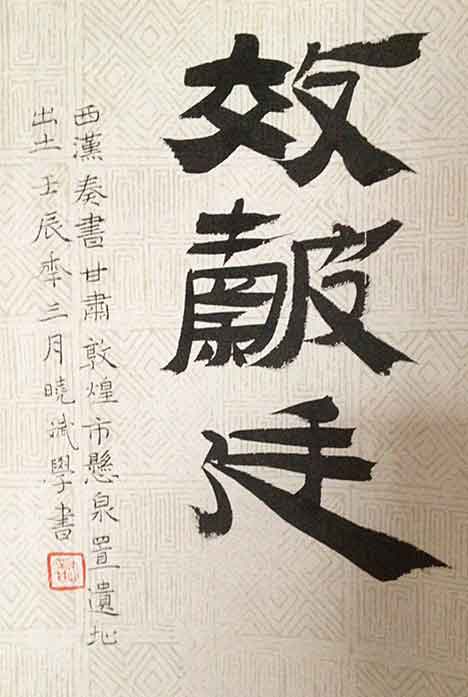 效穀廷
西漢奏書甘肅敦煌市懸泉置遺址
出土壬辰秊三月曉斌學書